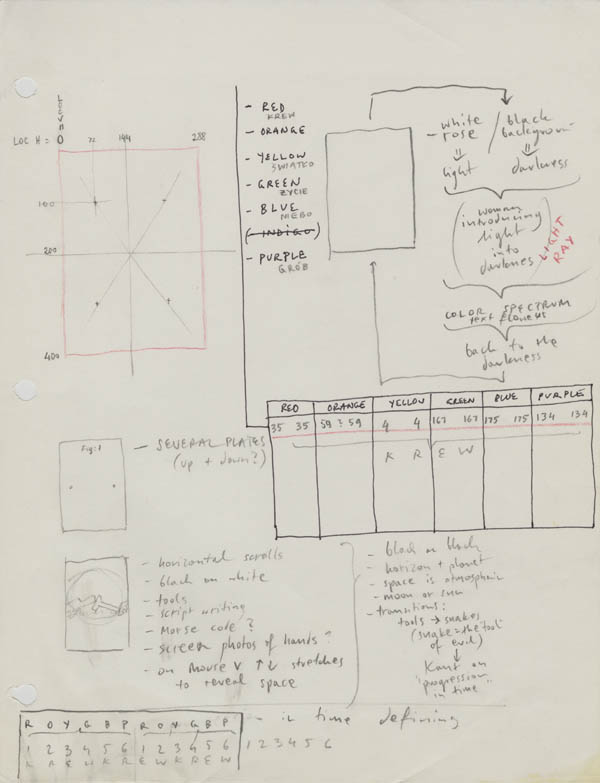 LOC V =
LOC H = 0 72 144 288
100
200
400
- RED
KREW
- ORANGE
- YELLOW
ŚWIATŁO
- GREEN
ŻYCIE
- BLUE
NIEBO
(- INDIGO)
- PURPLE
GRÓB
- white rose / black background
light darkness
(woman introducing light into darkness)
LIGHT RAY
COLOR SPECTRUM
TEXT FLOWERS
back to the darkness
RED ORANGE YELLOW GREEN BLUE PURPLE
35 35 59 ? 59 4 4 167 167 175 175 134 134
K R E W
Fig: 1
- SEVERAL PLATES
(up + down?)
- horizontal scrolls
- black on white
- tools
- script writing
- Morse code?
- screen photos of hands
- on mouse V ↑↓ stretches
to reveal space
- black on black
- horizon + planet
- space is atmospheric
- moon or sun
- transitions:
tools → snakes
(snake = the tool
of evil)
↓
Kant on
"progression
in time"
R O Y G B P R O Y G B P - in time defining
1 2 3 4 5 6 1 2 3 4 5 6 1 2 3 4 5 6
K R E W K R E W K R E W